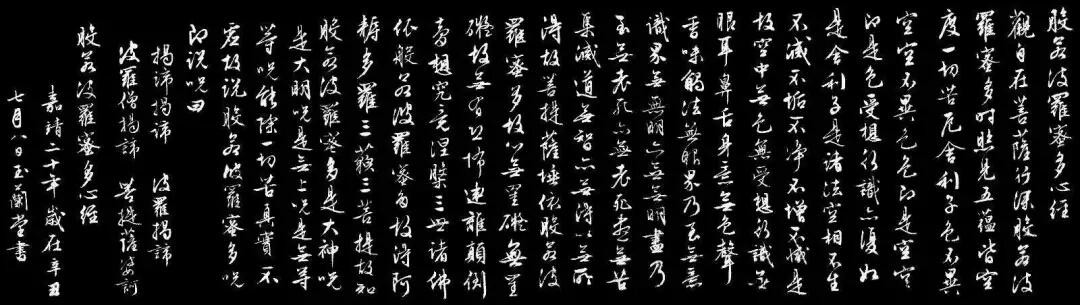 般若波羅蜜多心經
觀自在菩薩行深般若波
羅蜜多時照見五蘊皆空
度一切苦厄舍利子色不異
空空不異色色即是空空
即是色受想行識亦復如
是舍利子是諸法空相不生
不滅不垢不淨不增不減是
故空中無色無受想行識無
眼耳鼻舌身意無色聲
香味觸法無眼界乃至無意
識界無無明亦無無明盡乃
至無老死亦無老死盡無苦
集滅道無智亦無得以無所
得故菩提薩埵依般若波
羅蜜多故心無罣礙無罣
礙故無有恐怖遠離顛倒
夢想究竟涅槃三世諸佛
依般若波羅蜜多故得阿
耨多羅三藐三菩提故知
般若波羅蜜多是大神呪
是大明呪是無上呪是無等
等呪能除一切苦真實不
虛故說般若波羅蜜多呪
即說呪曰
揭諦揭諦 波羅揭諦
波羅僧揭諦 菩提薩婆訶
般若波羅蜜多心經
嘉靖二十年歲在辛丑
七月八日玉蘭堂書